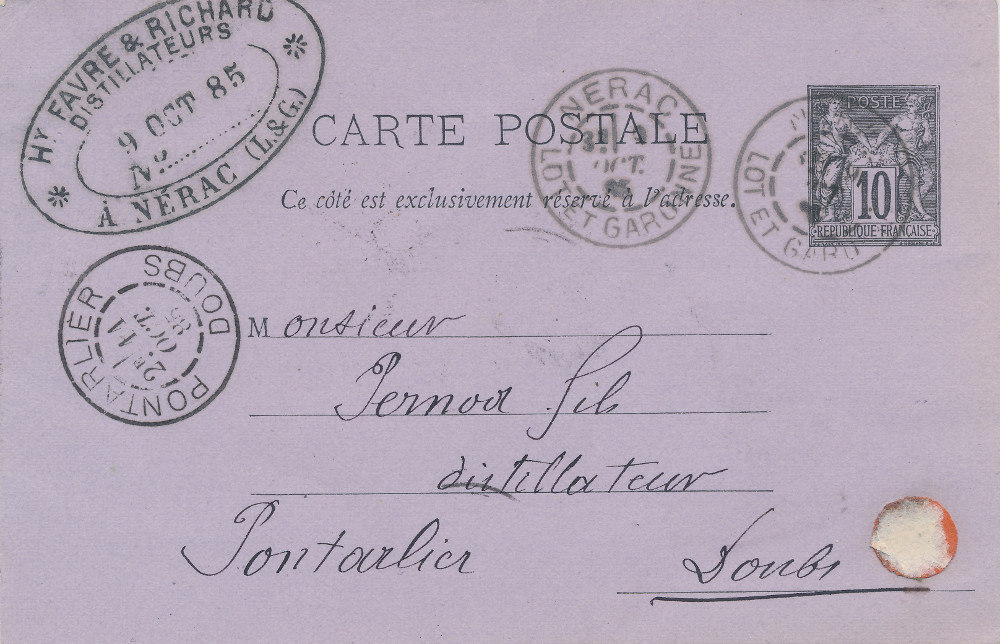 Hy FAVRE & RICHARD
DISTILLATEURS
9 OCT 85
No
À NÉRAC (L.&G.)
CARTE POSTALE
Ce côté est exclusivement réservé à l'adresse.
NERAC
OCT.
LOT ET GARONNE
LOT ET GARO
POSTE
10
REPUBLIQUE FRANÇAISE
PONTARLIER
2E 11
OCT.
85
DOUBS
Monsieur
Pernod fils
distillateur
Pontarlier Doubs